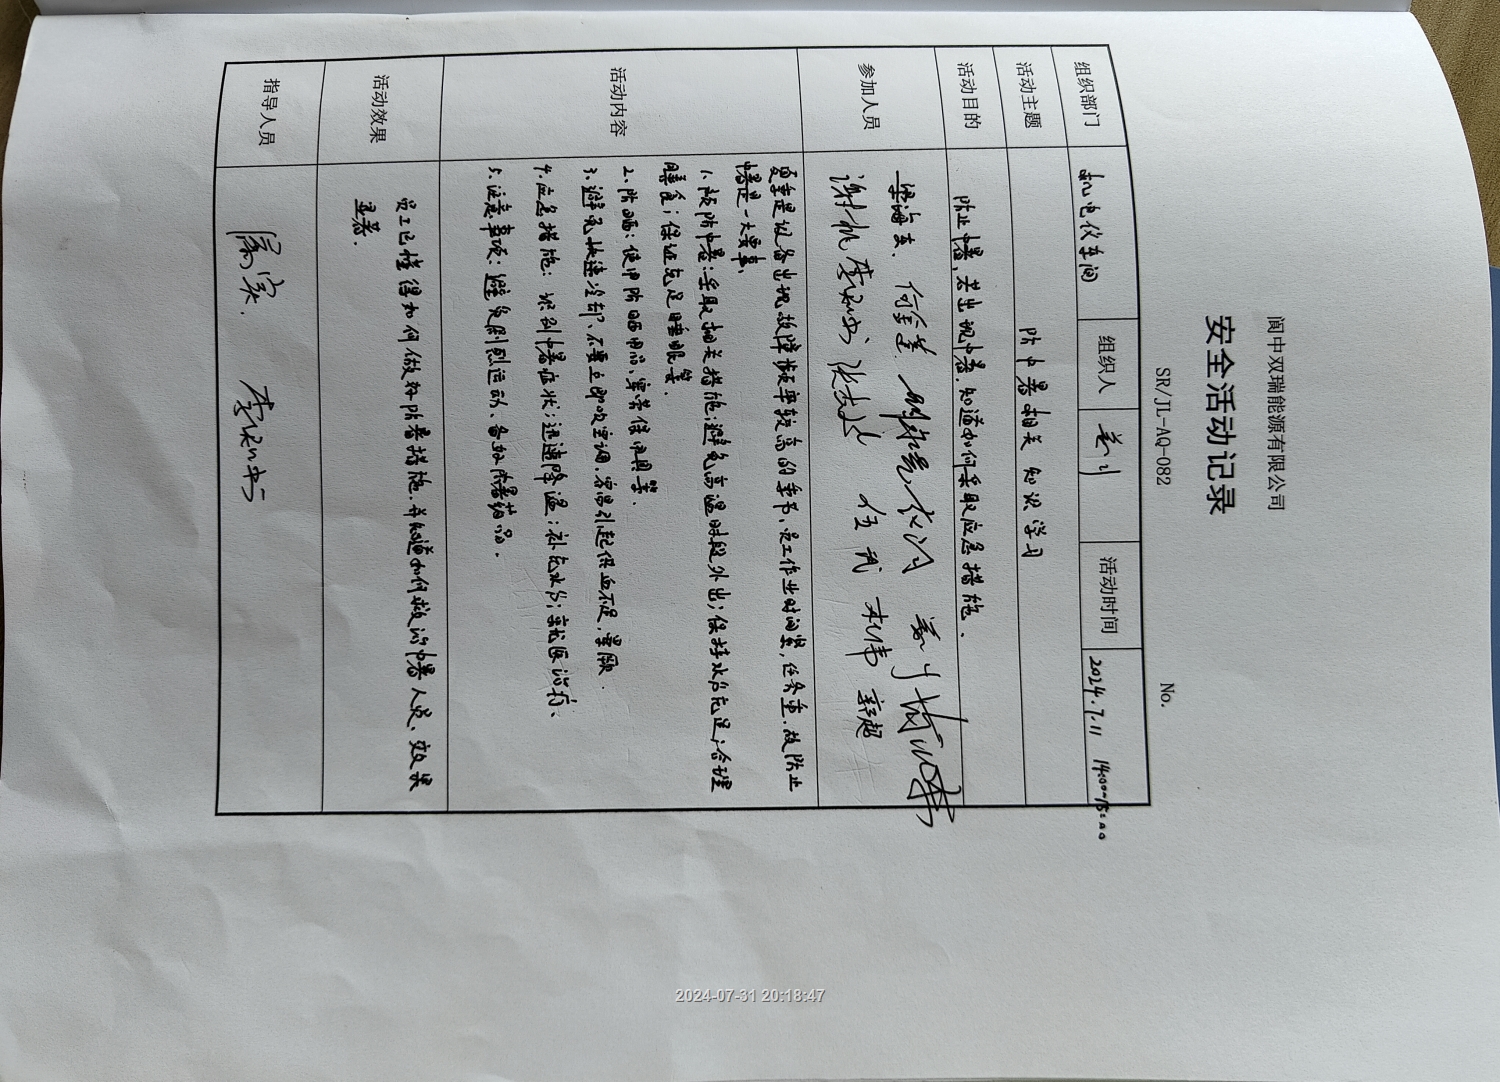 阆中双瑞能源有限公司
安全活动记录
SR/JL-AQ-082
No.
组织部门 机电仪车间 组织人 活动时间 2024.7.11 14:00-15:00
活动主题 防中暑相关知识学习
活动目的 防止中暑,若出现中暑,知道如何采取应急措施.
参加人员 梁海东、何金莲
谢帆 伍武 杜伟
活动内容 夏季是设备出现故障频率较高的季节,员工作业时间紧,任务重,故防止
中暑是一大要事.
1、预防中暑:采取相关措施;避免高温时段外出;保持水分充足;合理
膳食;保证充足睡眠等.
2、防晒:使用防晒用品、穿劳保用具等.
3、避免快速冷却、不要立即吹空调、容易引起供血不足,晕厥.
4、应急措施:识别中暑症状;迅速降温;补充水分;就医治疗、
5、注意事项:避免剧烈运动、备好防暑药品.
活动效果 员工已懂得如何做好防暑措施,并知道如何救治中暑人员、效果
显著.
指导人员
2024-07-31 20:18:47